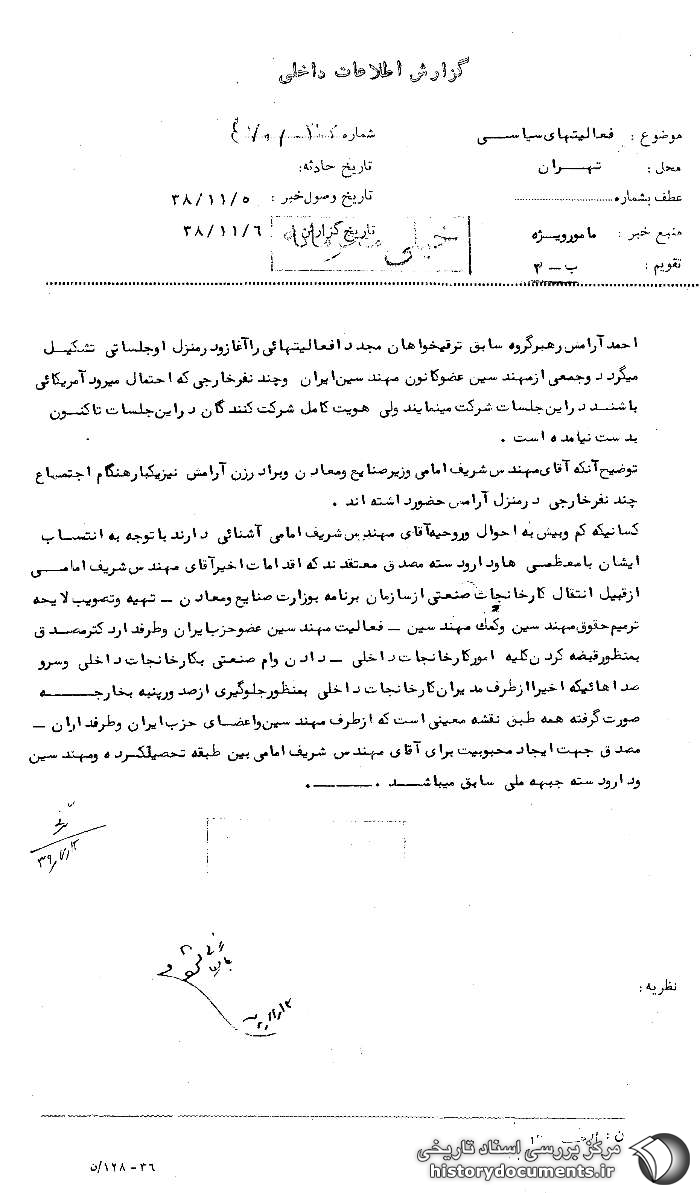 گزارش اطلاعات داخلی
موضوع : فعالیتهای سیاسـی
شماره
محل : تهـران
تاریخ حادثه:
عطف بشماره
تاریخ وصول خبر : ۳۸/۱۱/۵
منبع خبر : مامور ویژه
تاریخ گزارش : ۳۸/۱۱/۶
خیلی محرمانه
تقویم : ب – ۳
احمد آرامش رهبر گروه سابق ترقیخواهان مجددا فعالیتهائی را آغاز و در منزل او جلساتی تشکیل
میگردد و جمعی از مهندسین عضو کانون مهندسین ایران و چند نفر خارجی که احتمال میرود آمریکائی
باشند در این جلسات شرکت مینمایند ولی هویت کامل شرکت کنندگان در این جلسات تاکنون
بدست نیامده است .
توضیح آنکه آقای مهندس شریف امامی وزیر صنایع و معادن و برادر زن آرامش نیز یکبار هنگام اجتماع
چند نفر خارجی در منزل آرامش حضور داشته اند .
کسانیکه کم و بیش به احوال و روحیه آقای مهندس شریف امامی آشنائی دارند با توجه به انتساب
ایشان با معظمی ها و دارودسته مصدق معتقدند که اقدامات اخیر آقای مهندس شریف امامـی
از قبیل انتقال کارخانجات صنعتی از سازمان برنامه بوزارت صنایع و معادن – تهیه و تصویب لایحه
ترمیم حقوق مهندسین و کمک مهندسین – فعالیت مهندسین عضو حزب ایران و طرفدار دکتر مصدق
بمنظور قبضه کردن کلیه امور کارخانجات داخلی – دادن وام صنعتی بکارخانجات داخلی و سرو
صداهائیکه اخیرا از طرف مدیران کارخانجات داخلی بمنظور جلوگیری از صدور پنبه بخارجـه
صورت گرفته همه طبق نقشه معینی است که از طرف مهندسین و اعضای حزب ایران و طرفداران –
مصدق جهت ایجاد محبوبیت برای آقای مهندس شریف امامی بین طبقه تحصیلکرده و مهندسین
و دارودسته جبهه ملی سابق میباشـد .
نظریه :
۳۶ – ۱۲۸/ن
مرکز بررسی اسناد تاریخی
historydocuments.ir